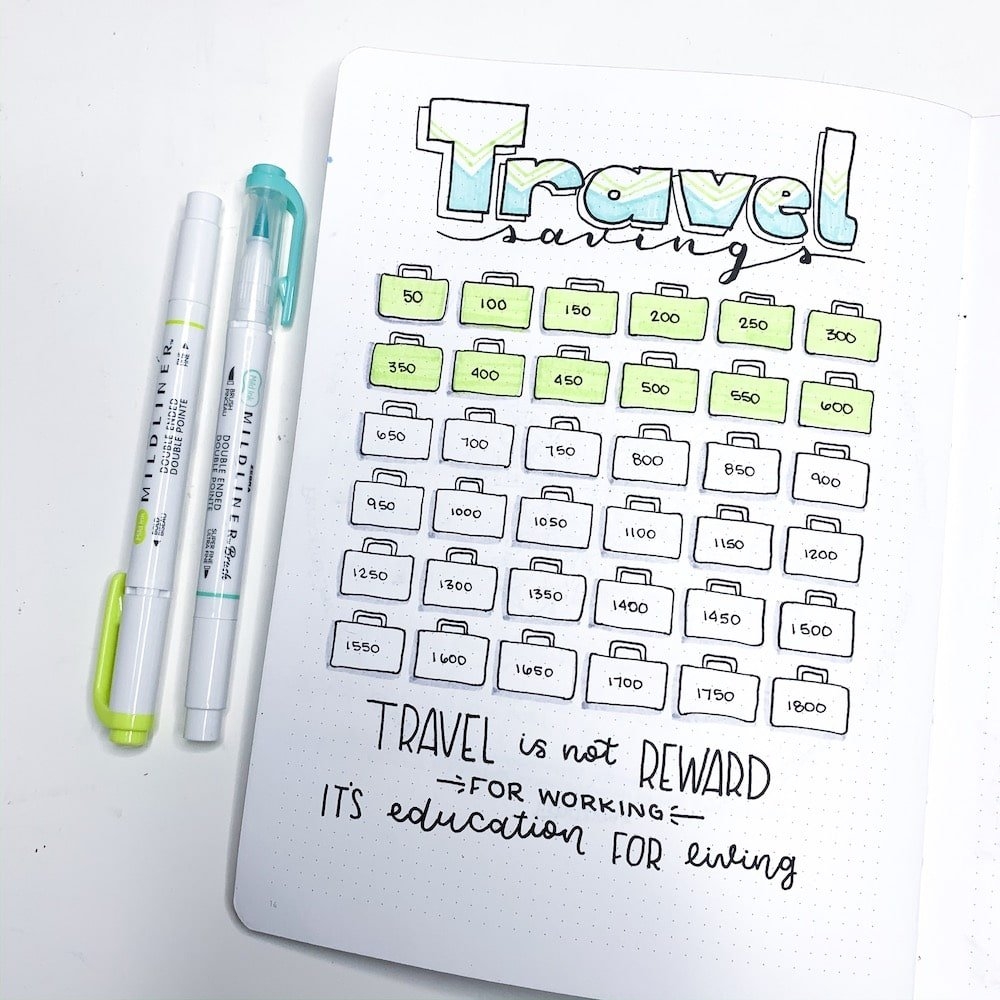 Travel
savings
50 100 150 200 250 300
350 400 450 500 550 600
650 700 750 800 850 900
950 1000 1050 1100 1150 1200
1250 1300 1350 1400 1450 1500
1550 1600 1650 1700 1750 1800
TRAVEL is not REWARD
FOR WORKING
IT'S education FOR living
14
MILDLINER™
DOUBLE ENDED
DOUBLE POINTE
MILDLINER™ Brush
DOUBLE ENDED
DOUBLE POINTE
BRUSH
PINCEAU
SUPER FINE
ULTRA FINE